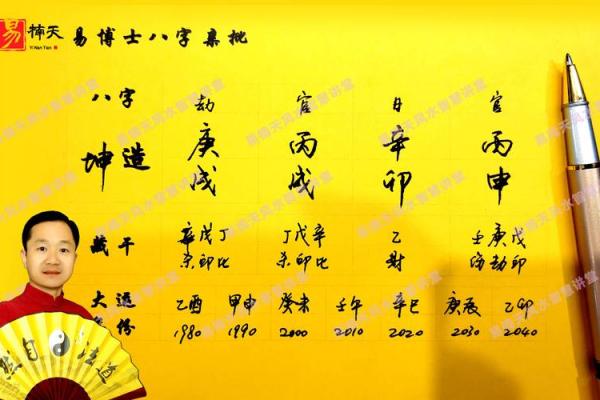 易 楠天 易博士八字亲批
Yi Nan Tian
八字 劫 官 日 官
坤造 庚戌 丙戌 辛卯 丙申
藏干 辛戊丁 丁戊辛 乙 壬庚戊
杀印比 杀印比 财 伤劫印
大运 乙酉 甲申 癸未 壬午 辛巳 庚辰 乙卯
年份 1980 1990 2000 2010 2020 2030 2040
自 法道
易楠天风水智慧讲堂